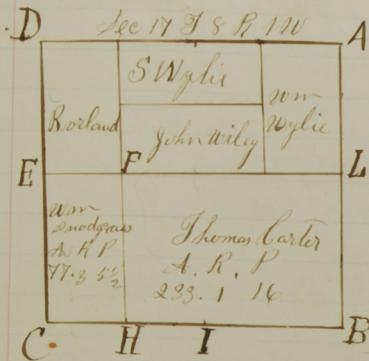 D Sec 17 T 8 R 1 W A
S Wylie
Wm
Wylie
Borland
John Wiley
E F L
Wm
Snodgrass
A R P
77.3 5½
Thomas Carter
A. R. P
233. 1 16
C H I B